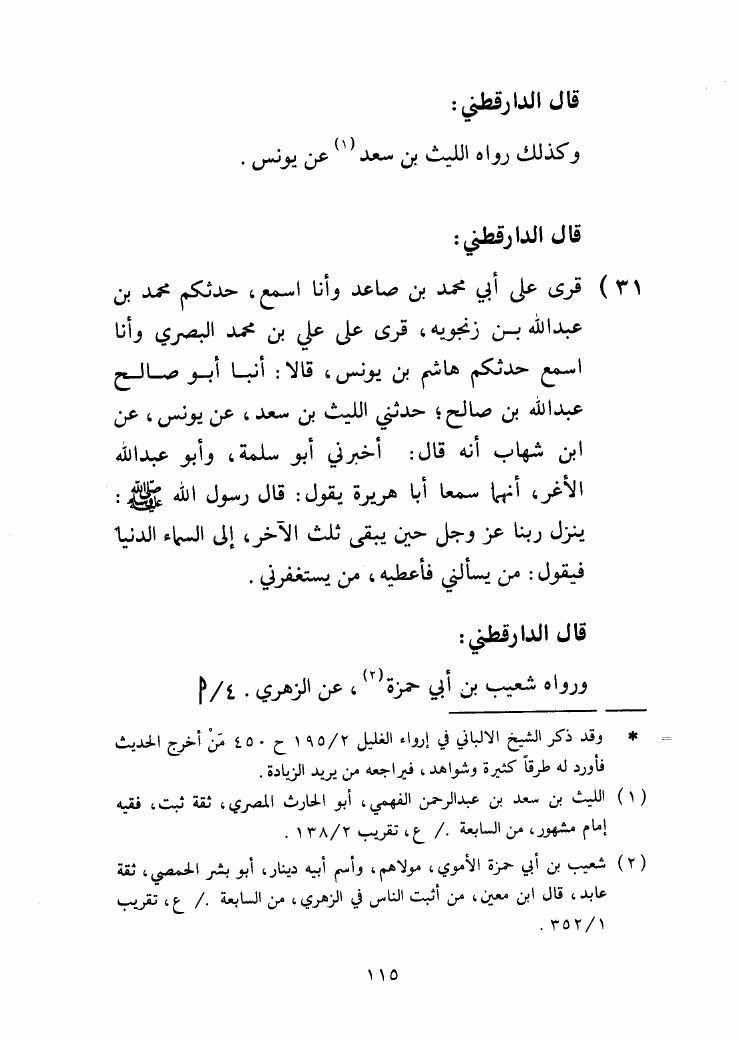 قال الدارقطني:
وكذلك رواه الليث بن سعد(١) عن يونس.
قال الدارقطني:
٣١) قرى على أبي محمد بن صاعد وأنا اسمع، حدثكم محمد بن
عبدالله بـن زنجويه، قرى على علي بن محمد البصري وأنا
اسمع حدثكم هاشم بن يونس، قالا: أنبـا أبـو صـالـح
عبدالله بن صالح؛ حدثني الليث بن سعد، عن يونس، عن
ابن شهاب أنه قال: أخبرني أبو سلمة، وأبو عبدالله
الأغر، أنهما سمعا أبا هريرة يقول: قال رسول الله ﷺ :
ينزل ربنا عز وجل حين يبقى ثلث الآخر، إلى السماء الدنيا
فيقول: من يسألني فأعطيه، من يستغفرني.
قال الدارقطني:
ورواه شعيب بن أبي حمزة(٢)، عن الزهري. ٤/أ
= * وقد ذكر الشيخ الالباني في إرواء الغليل ١٩٥/٢ ح ٤٥٠ مَنْ أخرج الحديث
فأورد له طرقاً كثيرة وشواهد، فيراجعه من يريد الزيادة.
(١) الليث بن سعد بن عبدالرحمن الفهمي، أبو الحارث المصري، ثقة ثبت، فقيه
إمام مشهور، من السابعة ./ ع، تقريب ١٣٨/٢.
(٢) شعيب بن أبي حمزة الأموي، مولاهم، وأسم أبيه دينار، أبو بشر الحمصي، ثقة
عابد، قال ابن معين، من أثبت الناس في الزهري، من السابعة ./ ع، تقريب
٣٥٢/١.
١١٥